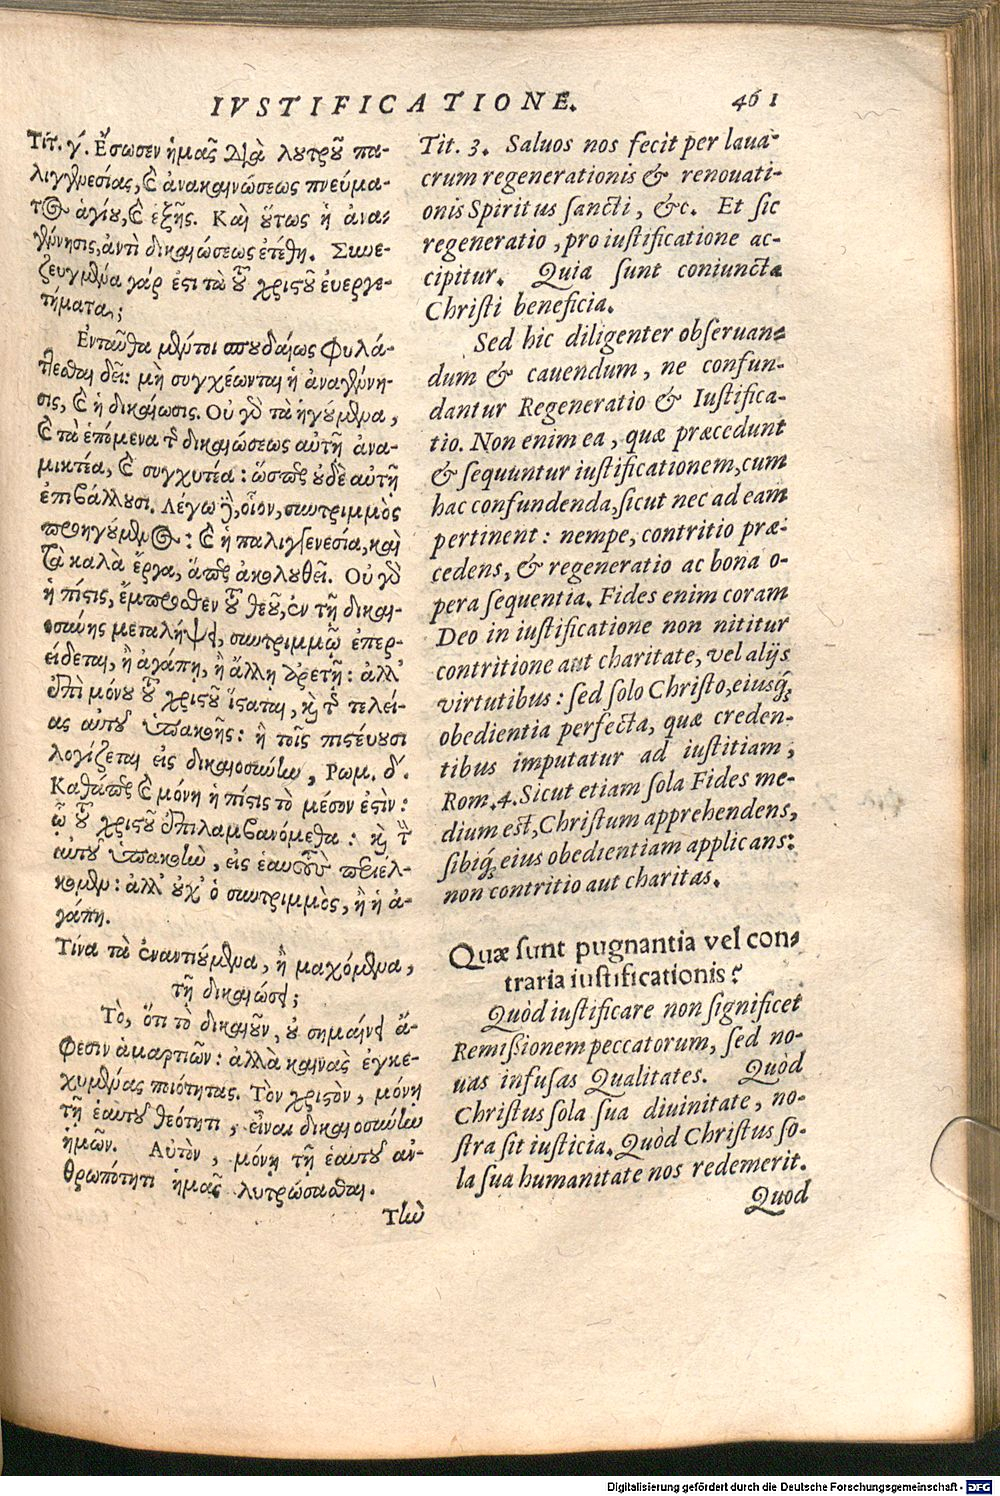 IVSTIFICATIONE. 461
Τίτ. γ΄. Ἔσωσεν ἡμᾶς διὰ λουτροῦ πα-
λιγγενεσίας, καὶ ἀνακαινώσεως πνεύμα-
τος ἁγίου, καὶ ἑξῆς. Καὶ οὕτως ἡ ἀνα-
γέννησις, ἀντὶ δικαιώσεως ἐτέθη. Συνε-
ζευγμένα γάρ ἐστι τὰ τοῦ χριστοῦ ἐυεργε-
τήματα;
Ἐνταῦθα μέντοι σπουδαίως φυλά-
τεσθαι δεῖ: μὴ συγχέωνται ἡ ἀναγέννη-
σις, καὶ ἡ δικαίωσις. Οὐ γὰρ τὰ ἡγούμενα,
καὶ τὰ ἑπόμενα τῆς δικαιώσεως αὐτῇ ἀνα-
μικτέα, καὶ συγχυτέα: ὥσπερ οὐδὲ αὐτῇ
ἐπιβάλλουσι. Λέγω δὴ, οἷον, συντριμμὸς
προηγούμενος: καὶ ἡ παλιγγενεσία, καὶ
τὰ καλὰ ἔργα, ἅπερ ἀκολουθεῖ. Οὐ γὰρ
ἡ πίστις, ἔμπροσθεν τοῦ θεοῦ, ἐν τῇ δικαι-
οσύνης μεταλήψει, συντριμμῷ ἐπερ-
είδεται, ἢ ἀγάπῃ, ἢ ἄλλῃ ἀρετῇ: ἀλλ᾽
ἐπὶ μόνου τοῦ χριστοῦ ἵσταται, καὶ τῆς τελεί-
ας αὐτοῦ ὑπακοῆς: ἣ τοῖς πιστεύουσι
λογίζεται εἰς δικαιοσύνην, Ρωμ. δ΄.
Καθάπερ καὶ μόνη ἡ πίστις τὸ μέσον ἐστὶν:
ᾧ τοῦ χριστοῦ ἐπιλαμβανόμεθα: καὶ τὴν
αὐτοῦ ὑπακοὴν, εἰς ἑαυτοὺς περιέλ-
κομεν: ἀλλ᾽ οὐχ᾽ ὁ συντριμμὸς, ἢ ἡ ἀ-
γάπη.
Τίνα τὰ ἐναντιούμενα, ἢ μαχόμενα,
τῇ δικαιώσει;
Τὸ, ὅτι τὸ δικαιοῦν, οὐ σημαίνει ἄ-
φεσιν ἁμαρτιῶν: ἀλλὰ καινὰς ἐγκε-
χυμένας ποιότητας. Τὸν χριστὸν, μόνῃ
τῇ ἑαυτοῦ θεότητι, εἶναι δικαιοσύνην
ἡμῶν. Αὐτὸν, μόνῃ τῇ ἑαυτοῦ ἀν-
θρωπότητι ἡμᾶς λυτρώσασθαι.
Τὴν
Tit. 3. Saluos nos fecit per laua-
crum regenerationis & renouati-
onis Spiritus sancti, &c. Et sic
regeneratio, pro iustificatione ac-
cipitur. Quia sunt coniuncta
Christi beneficia.
Sed hic diligenter obseruan-
dum & cauendum, ne confun-
dantur Regeneratio & Iustifica-
tio. Non enim ea, quæ præcedunt
& sequuntur iustificationem, cum
hac confundenda, sicut nec ad eam
pertinent: nempe, contritio præ-
cedens, & regeneratio ac bona o-
pera sequentia. Fides enim coram
Deo in iustificatione non nititur
contritione aut charitate, vel alijs
virtutibus: sed solo Christo, eiusq́;
obedientia perfecta, quæ creden-
tibus imputatur ad iustitiam,
Rom. 4. Sicut etiam sola Fides me-
dium est, Christum apprehendens,
sibiq́; eius obedientiam applicans:
non contritio aut charitas.
Quæ sunt pugnantia vel con-
traria iustificationis?
Quòd iustificare non significet
Remissionem peccatorum, sed no-
uas infusas Qualitates. Quòd
Christus sola sua diuinitate, no-
stra sit iusticia. Quòd Christus so-
la sua humanitate nos redemerit.
Quod
Digitalisierung gefördert durch die Deutsche Forschungsgemeinschaft - DFG